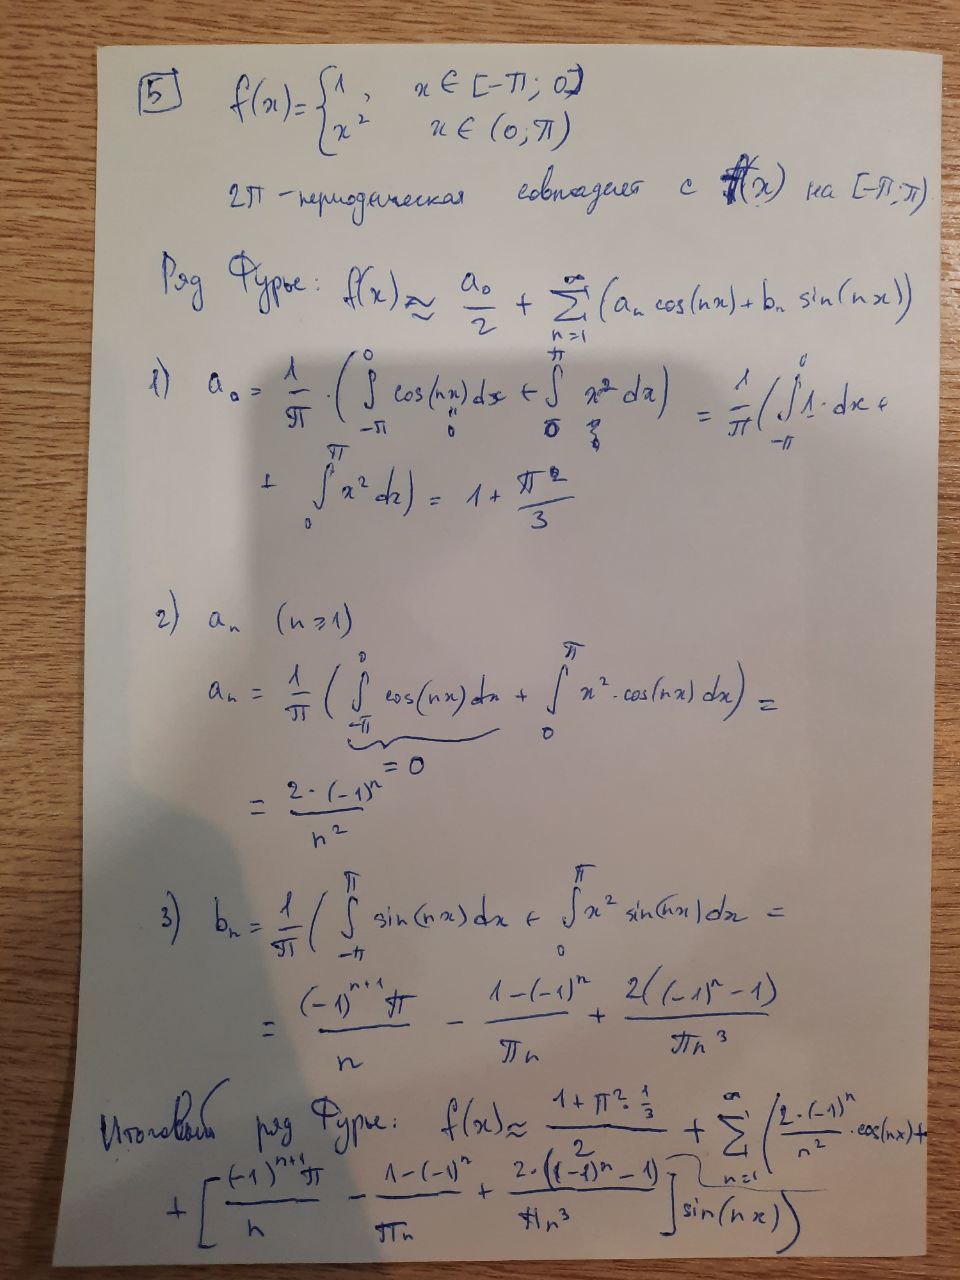 5 f(x) = { 1, x ∈ [-π; 0]
x² x ∈ (0; π)
2π - периодическая совпадает с f(x) на [-π; π)
Ряд Фурье: f(x) ≈ a₀/2 + ∑_{n=1}^{∞} (aₙ cos(nx) + bₙ sin(nx))
1) a₀ = 1/π · (∫_{-π}^{0} cos(nx) dx + ∫_{0}^{π} x² dx) = 1/π (∫_{-π}^{0} 1· dx +
+ ∫_{0}^{π} x² dx) = 1 + π²/3
2) aₙ (n ≥ 1)
aₙ = 1/π (∫_{-π}^{0} cos(nx) dx + ∫_{0}^{π} x² · cos(nx) dx) =
= 0
= 2·(-1)ⁿ / n²
3) bₙ = 1/π (∫_{-π}^{π} sin(nx) dx + ∫_{0}^{π} x² sin(nx) dx =
= (-1)ⁿ⁺¹ π / n - 1-(-1)ⁿ / πn + 2((-1)ⁿ - 1) / πn³
Итоговый ряд Фурье: f(x) ≈ 1 + π² · 1/3 / 2 + ∑_{n=1}^{∞} (2·(-1)ⁿ / n² · cos(nx) +
+ [(-1)ⁿ⁺¹ π / n - 1-(-1)ⁿ / πn + 2·((-1)ⁿ - 1) / πn³] sin(nx))